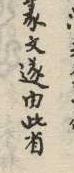 篆文遂由此省